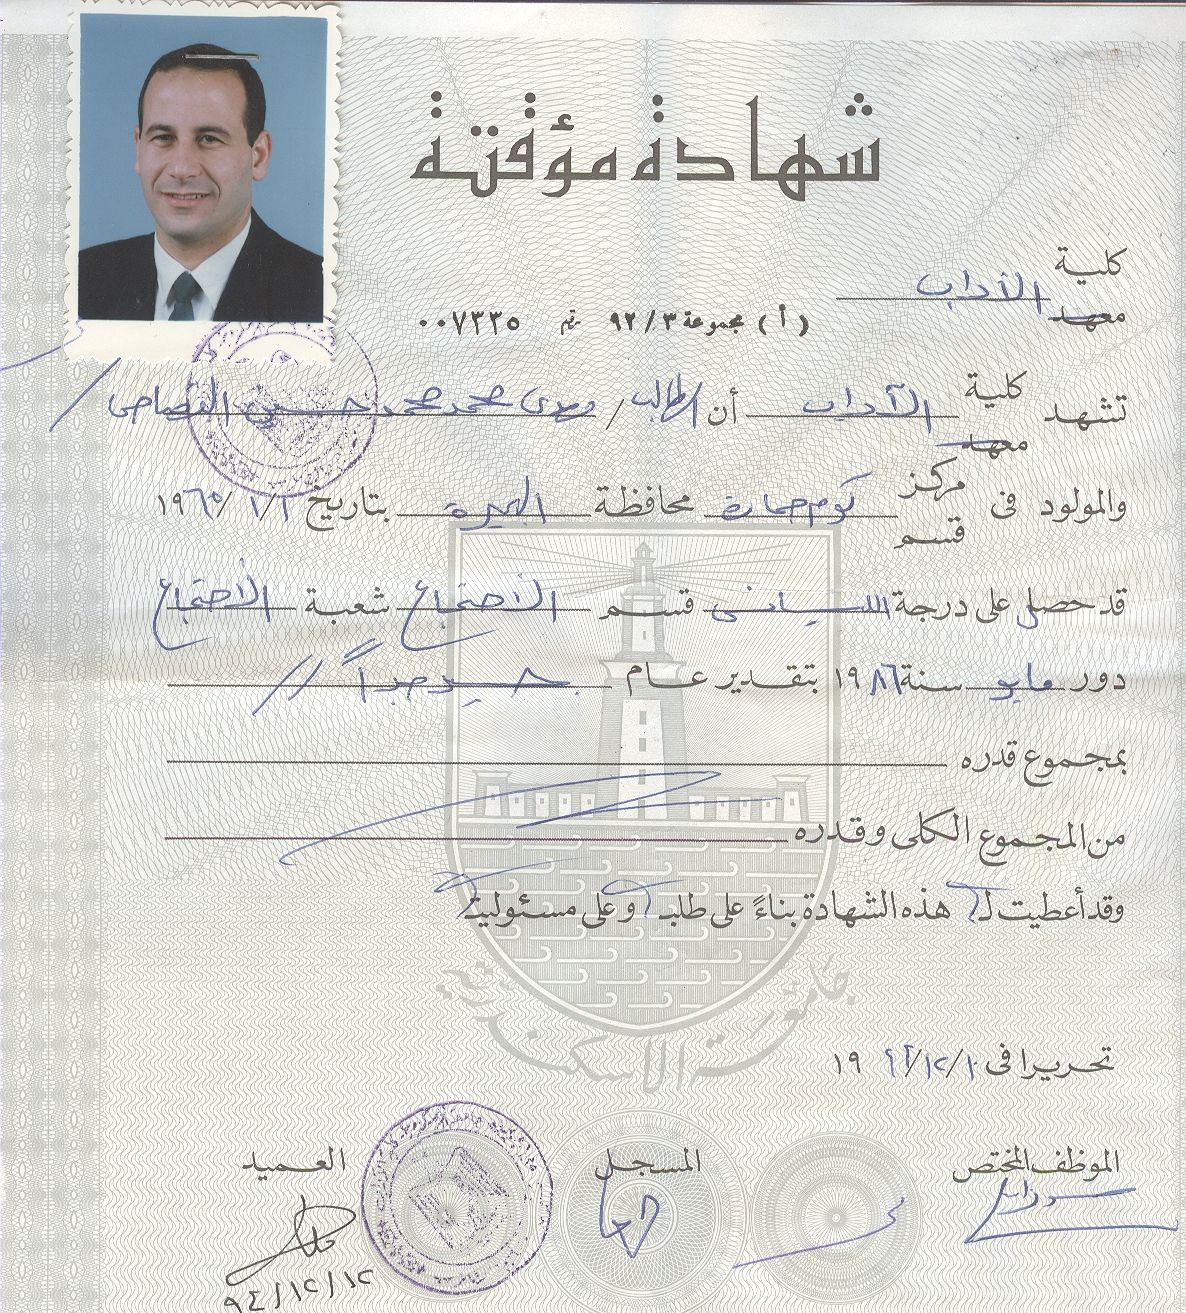 شهادة مؤقتة
كلية الآداب
معهد
(أ) مجموعة ٩٢/٣ رقم ٠٠٧٣٣٥
تشهد كلية الآداب أن الطالب / محمد محمد حسين القصاص /
معهد
والمولود فى مركز كوم حمادة محافظة البحيرة بتاريخ ١/١/١٩٦٥
قسم
قد حصل على درجة الليسانس قسم الاجتماع شعبة الاجتماع
دور مايو سنة ١٩٨٦ بتقدير عام جيد جداً //
بمجموع قدره
من المجموع الكلى وقدره
وقد أعطيت له هذه الشهادة بناءً على طلبه وعلى مسئوليته
جامعة الاسكندرية
تحريرا فى ١٠/١٢/ ١٩
الموظف المختص المسجل العميد
٩٤/١٢/١٢